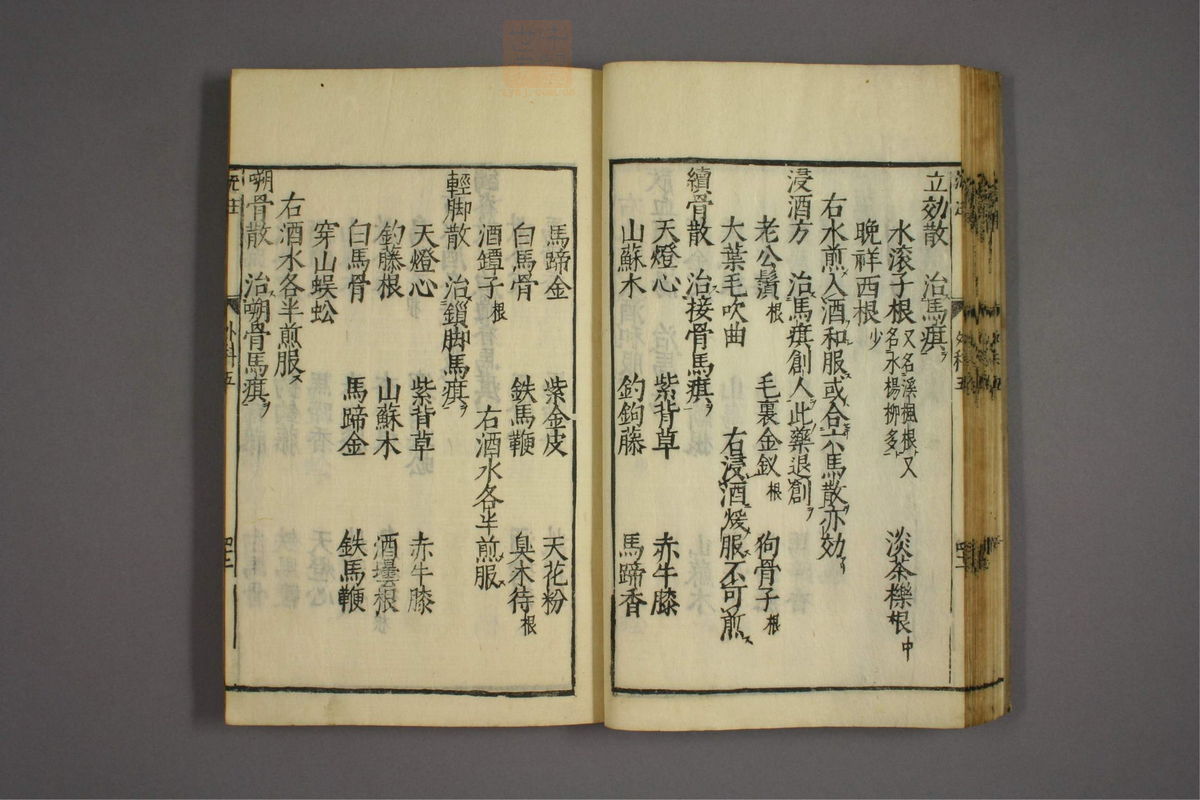 立効散　治馬㾿ヲ
水滚子根 又名溪楓根又名水楊柳多 淡茶櫟根 中
晩祥西根 少
右水煎入酒和服或合六馬散亦効
浸酒方　治馬㾿創人此藥退創
老公鬚 根　毛裏金釵 根　狗骨子 根
大葉毛吹曲　右浸酒煖服不可煎
續骨散　治接骨馬㾿ヲ
天燈心　紫背草　赤牛膝
山蘇木　釣鉤藤　馬蹄香
馬蹄金　紫金皮　天花粉
白馬骨　鉄馬鞭　臭木待 根
酒罈子 根　右酒水各半煎服
輕脚散　治鎖脚馬㾿ヲ
天燈心　紫背草　赤牛膝
釣藤根　山蘇木　酒壜根
白馬骨　馬蹄金　鉄馬鞭
穿山蜈蚣
右酒水各半煎服
嘲骨散　治嘲骨馬㾿ヲ
外科五